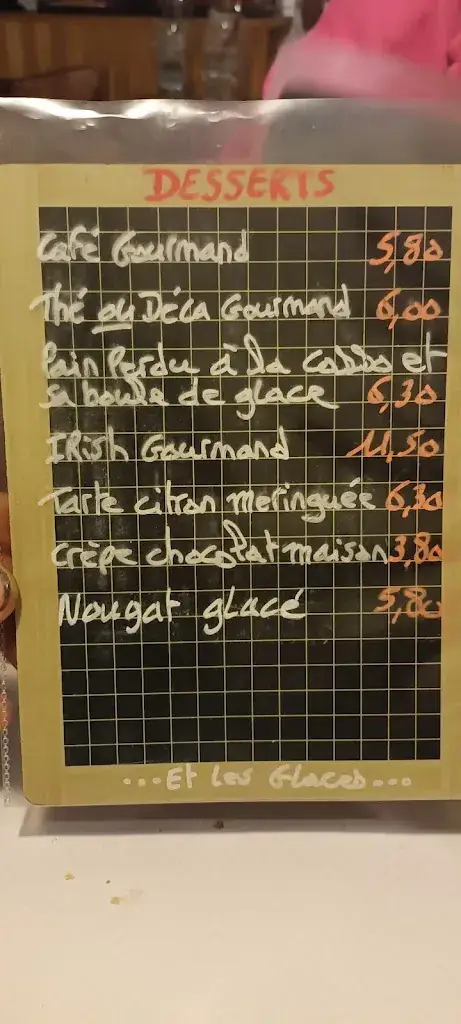 DESSERTS
Café Gourmand 5,80
Thé ou Déca Gourmand 6,00
Pain Perdu à la et
sa boule de glace 6,30
IRish Gourmand 11,50
Tarte citron meringuée 6,30
crèpe chocolat maison 3,80
Nougat glacé 5,80
...Et les Glaces...